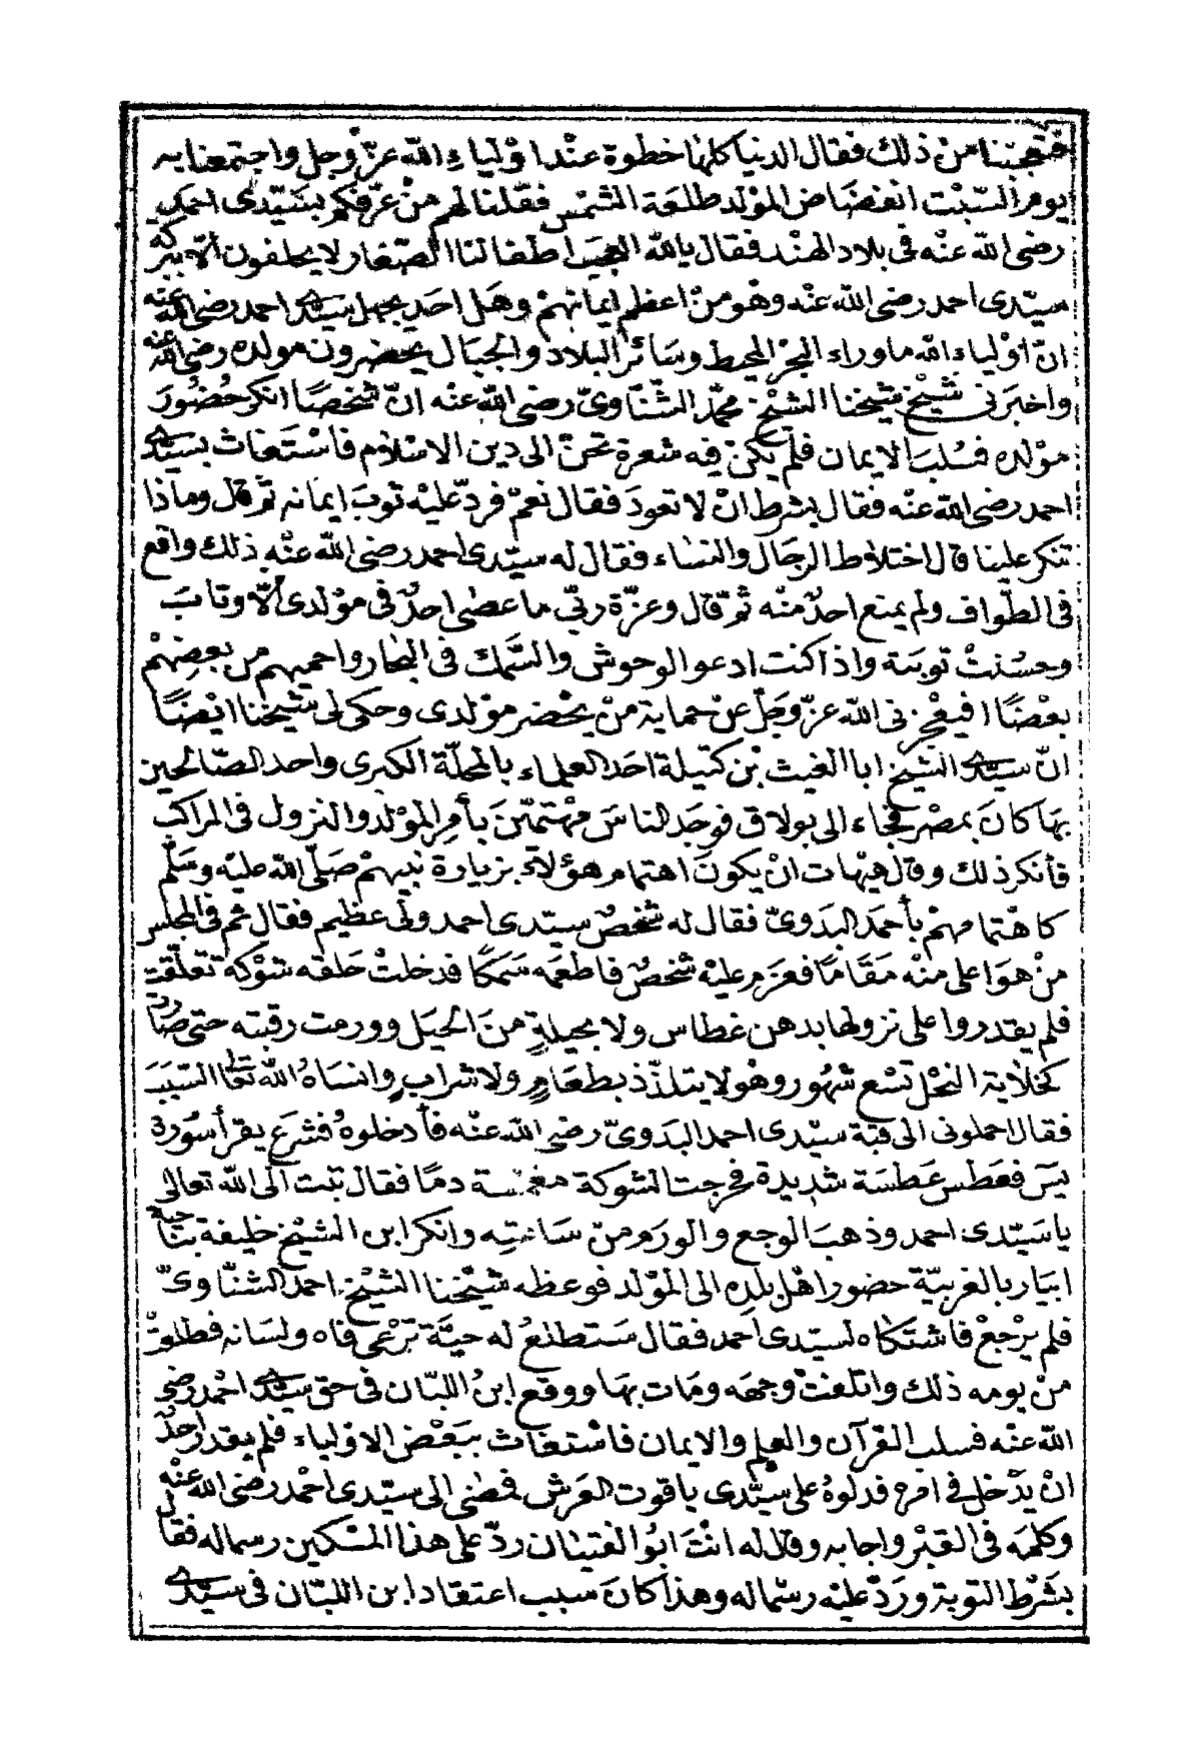 فتعجبنا من ذلك فقال الدنيا كلها خطوة عند اوْلياءِ الله عزّ وجل واجتمعنا به
يوم السّبْت انفضَاض المؤلد طلعَة الشمْس فقلنا لهم منْ عرّفكم بسَيّدى احمد
رضى الله عنْه فى بلاد الهنْد فقال يالله العجَب اطفالنا الصّغار لا يحلفون الاّ ببركة
سيّدى احمد رضى الله عنْه وهُو منْ اعظم ايمانهمْ وهَل احَد يجهل سَيّدى احمد رضى الله عنه
انّ اوْلياء الله ما وراء البحْر المحيط وسَائر البلاد والجبَال يحضرون موْلده رضى الله عنه
واخبَرنى شيْخ شيخنا الشيْخ محمّد الشّنّاوىّ رضى الله عنْه انّ شخصًا انكر حُضُورَ
موْلده فسُلبَ الايمان فلم يكنْ فيه شعرة تحنّ الى دين الاسْلام فاسْتَغاث بسَيّدى
احمد رضى الله عنْه فقال بشرط انْ لا تعودَ فقال نعمْ فردّ عليْه ثوبَ ايمانه ثم قال وماذا
تنكر علينا قال اختلاط الرجَال والنسَاء فقال له سيّدى احمد رضى الله عنْه ذلك واقع
فى الطّواف ولم يمنع احدٌ منْه ثمّ قال وعزّة ربّى ما عصَى احدٌ فى موْلدى الاّ وتابَ
وحسُنتْ توبَته واذا كنت ادعو الوحُوش والسّمك فى البحَار واحميهم من بعضِهمْ
بعْضًا افيعْجزنى الله عزّ وجَلّ عنْ حماية منْ يحْضر موْلدى وحكى لى شيْخنا ايْضًا
انّ سيّدى الشيْخ ابا الغيث بْن كتيلة احَد العلماء بالمحلّة الكبرى واحد الصّالحين
بهَا كانَ بمصْر فجاء الى بولاق فوجَد الناسَ مهْتمّينَ بأمر الموْلد والنزول فى المراكب
فأنكر ذلك وقال هيْهات انْ يكونَ اهتمام هؤلاَء بزيارة نبيهمْ صَلّى الله عليْه وسَلّم
كاهْتمامهمْ بأحمَد البَدَوىّ فقال له شخْصٌ سيّدى احمد ولىّ عظيم فقال ثم فى المجلس
منْ هوَ اعلى منْه مَقَامًا فعزم عليْه شخْصٌ فاطعَمه سَمَكًا فدخلتْ حَلقه شوْكة تعلّقت
فلم يقدروا على نزولها بدهن غطاس ولا بحيلةٍ منَ الحيَل وورمت رقبته حتى صَارت
كخلاية النحْل تسْع شهُور وهْو لا يتلذّذ بطعَامٍ ولا شرابٍ وانسَاهُ الله تعالى السّبَبَ
فقال احملونى الى قبّة سيّدى احمد البَدوىّ رضى الله عنْه فأدخلوهُ فشرَع يقرأ سُورة
يسَ فعَطس عَطسَة شديدة فخرجت الشوكة مغمّسة دمًا فقال تبت الى الله تعالى
يا سَيّدى احمد وذهبَ الوجع والورَم منْ سَاعتِه وانكر ابن الشيْخ خليفة بناحية
ابيار بالغربيّة حضور اهْل بلدِه الى الموْلد فوعظه شيْخنا الشيْخ احمَد الشنّاوىّ
فلم يرْجعْ فاشتكاه لسيّدى احمد فقال سَتطلعُ له حبّة ترْعى فاه ولسَانه فطلعتْ
منْ يومه ذلك واتلفتْ وجهَه ومَات بهَا ووقع ابنُ اللبّان فى حق سَيّدى احْمد رضى
الله عنْه فسلب القرْآن والعلم والايمان فاسْتغاث ببَعْض الاوْلياء فلم يقدر احَدٌ
انْ يدْخل فى امْره فدلوهُ على سيّدى ياقوت العَرش فمضى الى سيّدى احْمد رضى الله عنْه
وكلمَه فى القبْر واجابه وقال له انْتَ ابُو الفتيان ردّ على هذا المسْكين رسماله فقال
بشَرْط التوبة وردّ عليْه رسْماله وهذا كانَ سبب اعتقاد ابن اللبّان فى سيّدى